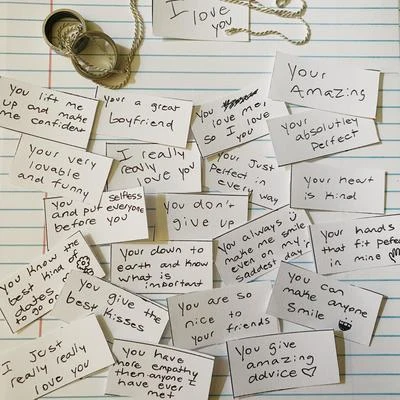 I love
you
Your
Amazing
You lift me
up and make
me confident
Your a great
boyfriend
You
love me,
so I love
you
Your
absolutley
perfect
Your very
lovable
and funny
I really
really
love you
Your Just
perfect in
every way
Your heart
is kind
You selfless
and put everyone
before you
you don't
give up
You always
make me smile
even on my
saddest day
Your hands
that fit pefect
in mine
You know the
best kind of
dates
to go on
Your down to
earth and know
what is
important
You give the
best kisses
You are so
nice to
your friends
You can
make anyone
smile
I Just
really really
love you
You have
more empathy
then anyone I
have ever
met
You give
amazing
advice